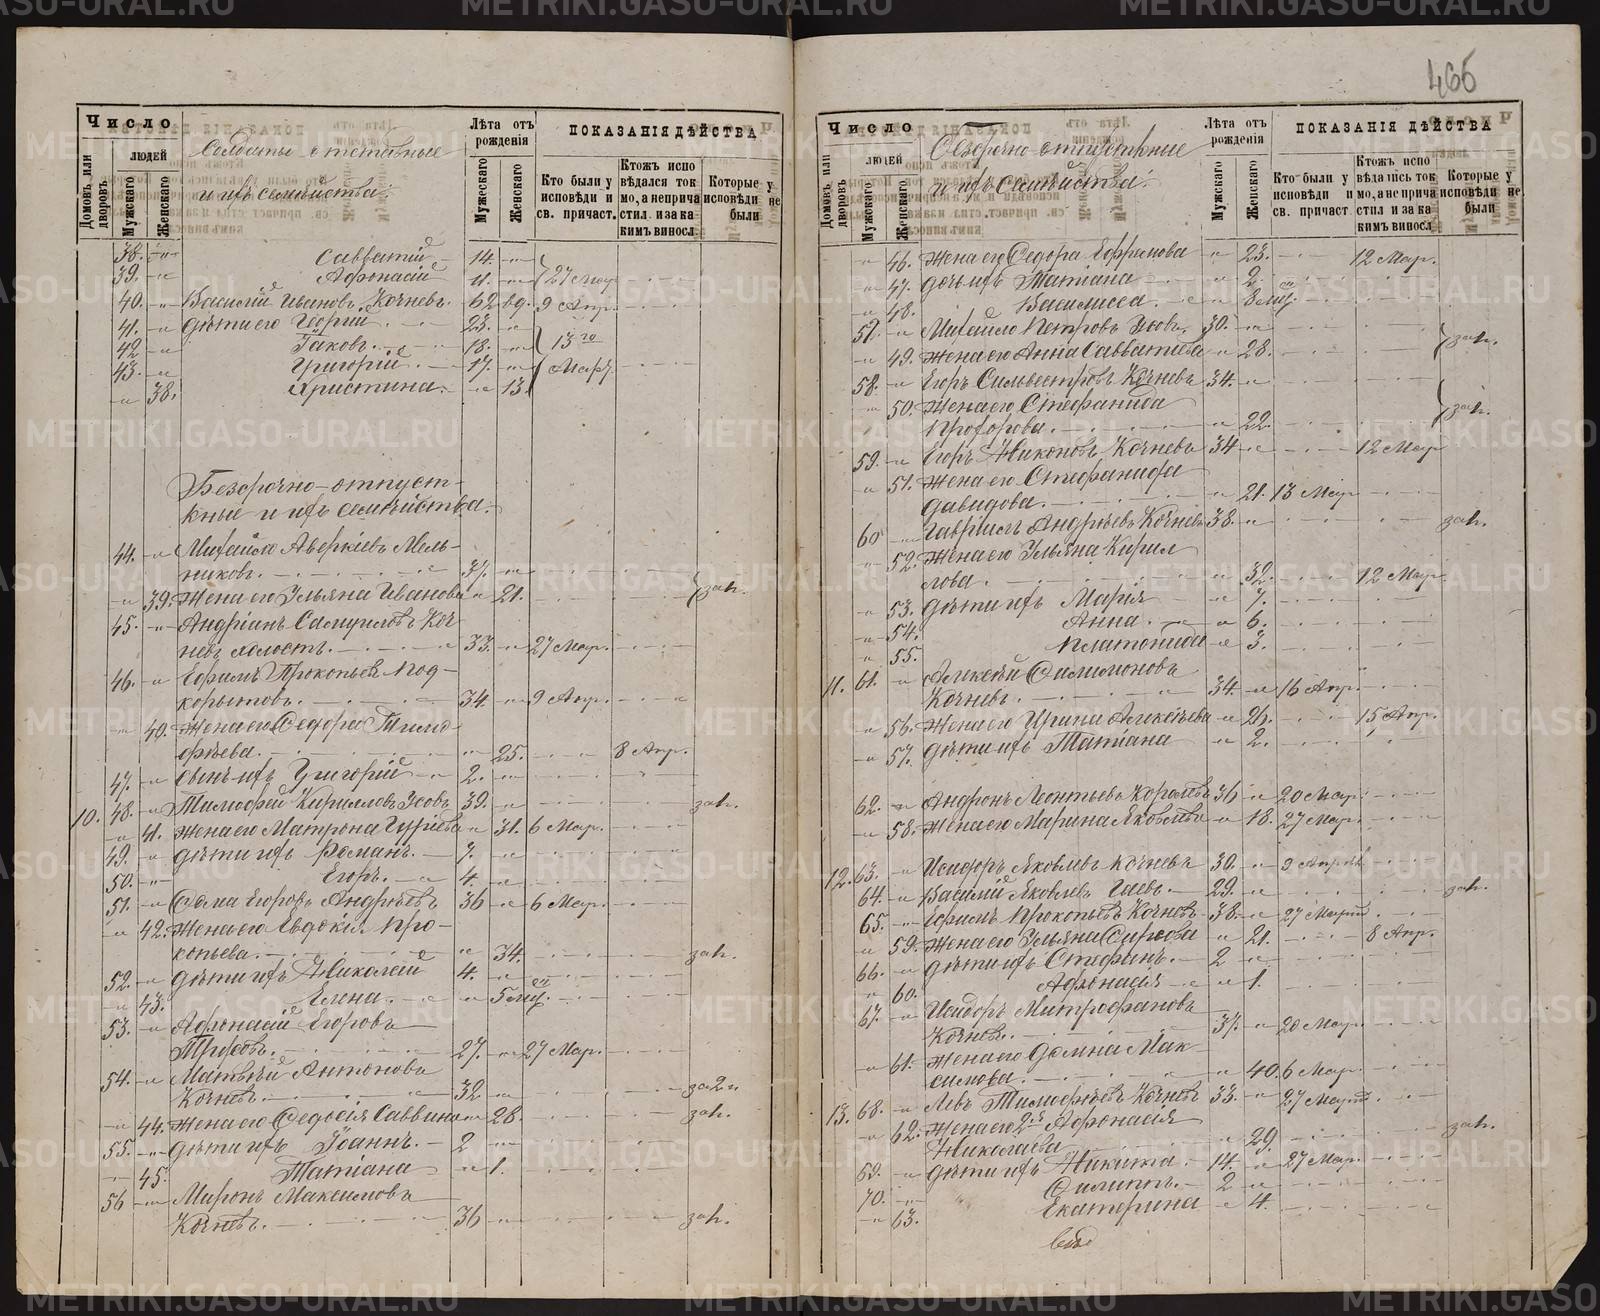 Число
людей
Домовъ или дворовъ
Мужскаго
Женскаго
Солдаты отставные
и ихъ семейства
Лѣта отъ рожденія
Мужескаго
Женскаго
ПОКАЗАНІЯ ДѢЙСТВА
Кто были у исповѣди и св. причаст.
Ктожъ исповѣдался токмо, а не причастил и за каким винosл.
Которые у исповѣди не были
38. Савватій 14.
39. Афонасій 11. 27 Мар
40. Василій Ивановъ Кочневъ. 62 вд. 9 Апр.
41. дѣти его Георгій 23.
42 Іаковъ. 18. 13го
43. Григорій. 17. Март
38. Христина. 13.
Безсрочно-отпуст-
кные и ихъ семейства.
44. Михаилъ Аверкіевъ Мель-
никовъ. 37.
39. Жена его Ульяна Иванова 21. зан.
45. Андріанъ Самуиловъ Коч-
невъ холостъ. 33. 27 Мар.
46. Ефимъ Прокопьевъ Под-
корытовъ. 34. 9 Апр.
40. Жена его Федора Тимо-
фѣева. 25. 8 Апр.
47. сынъ ихъ Григорій 2.
10. 48. Тимофей Кирилловъ Усовъ 39. зан.
41. Жена его Матрона Гуріева 31. 6 Мар.
49. дѣти ихъ Романъ. 7.
50. Егоръ. 4.
51. Фома Егоровъ Андреевъ 36 6 Мар.
42. Жена его Евдокія Про-
копьева. 34. зан.
52. дѣти ихъ Николай 4.
43. Елена. 5 мц.
53. Афонасій Егоровъ
27. 27 Мар.
54. Матвѣй Антоновъ
Кочневъ. 32
44. Жена его Федосія Саввина 28. зан.
55. дѣти ихъ Іоаннъ. 2
45. Татіана 1.
56 Миронъ Максимовъ
Кочневъ. 36 зан.
466
Число
людей
Домовъ или дворовъ
Мужскаго
Женскаго
Безсрочно отпускные
и ихъ семейства.
Лѣта отъ рожденія
Мужскаго
Женскаго
ПОКАЗАНІЯ ДѢЙСТВА
Кто были у исповѣди и св. причаст
Ктожъ исповѣдались токмо, а не причастил и за каким виносл
Которые у исповѣди не были
46. Жена его Федора Ефримова 23. 12 Мар.
47. дочь ихъ Татіана 2.
48. Василисса. 8 мц.
57. Михайло Петровъ Усовъ. 30.
49. Жена его Анна Савватіева 28. зан.
58. Егоръ Сильвестровъ Кочневъ 34.
50. Жена его Стефанида
Прохорова. 22. зан.
59. Егоръ Никоновъ Кочневъ 34 12 Мар
51. Жена его Стефанида
Давидова. 21. 13 Мар
60 Гавріилъ Андреевъ Кочневъ 38. зан.
52. Жена его Ульяна Кирил
лова. 32. 12 Мар.
53. дѣти ихъ Марія 7.
54. Анна. 6.
55. Платонида 3.
11. 61. Алексѣй Филимоновъ
Кочневъ. 34. 16 Апр.
56. Жена его Ирина Алексѣева 26. 15 Апр.
57. дѣти ихъ Татіана 2.
62. Андронъ Леонтьевъ 36 20 Мар.
58. Жена его Марина Яковлева 18. 27 Мар.
12. 63. Исидоръ Яковлевъ Кочневъ 30. 9 Апрѣл
64. Василій Яковлевъ Гаевъ. 29. зан.
65. Ефимъ Прокопьевъ Кочневъ 38. 27 Март.
59. Жена его Ульяна 21. 8 Апр.
66. дѣти ихъ Стефанъ. 2
60. Афонасія 1.
67. Исидоръ Митрофановъ
Кочневъ. 37. 20 Мар.
61. Жена его Домна Мак-
симова. 40. 6 Мар.
13. 68. Левъ Тимофеевъ Кочневъ 33. 27 Март.
62. Жена его 2я Афонасія
Николаева 29. зан.
69. дѣти ихъ Никита. 14. 27 Мар.
70. Филиппъ. 2
63. Екатерина 4.
METRIKI.GASO-URAL.RU